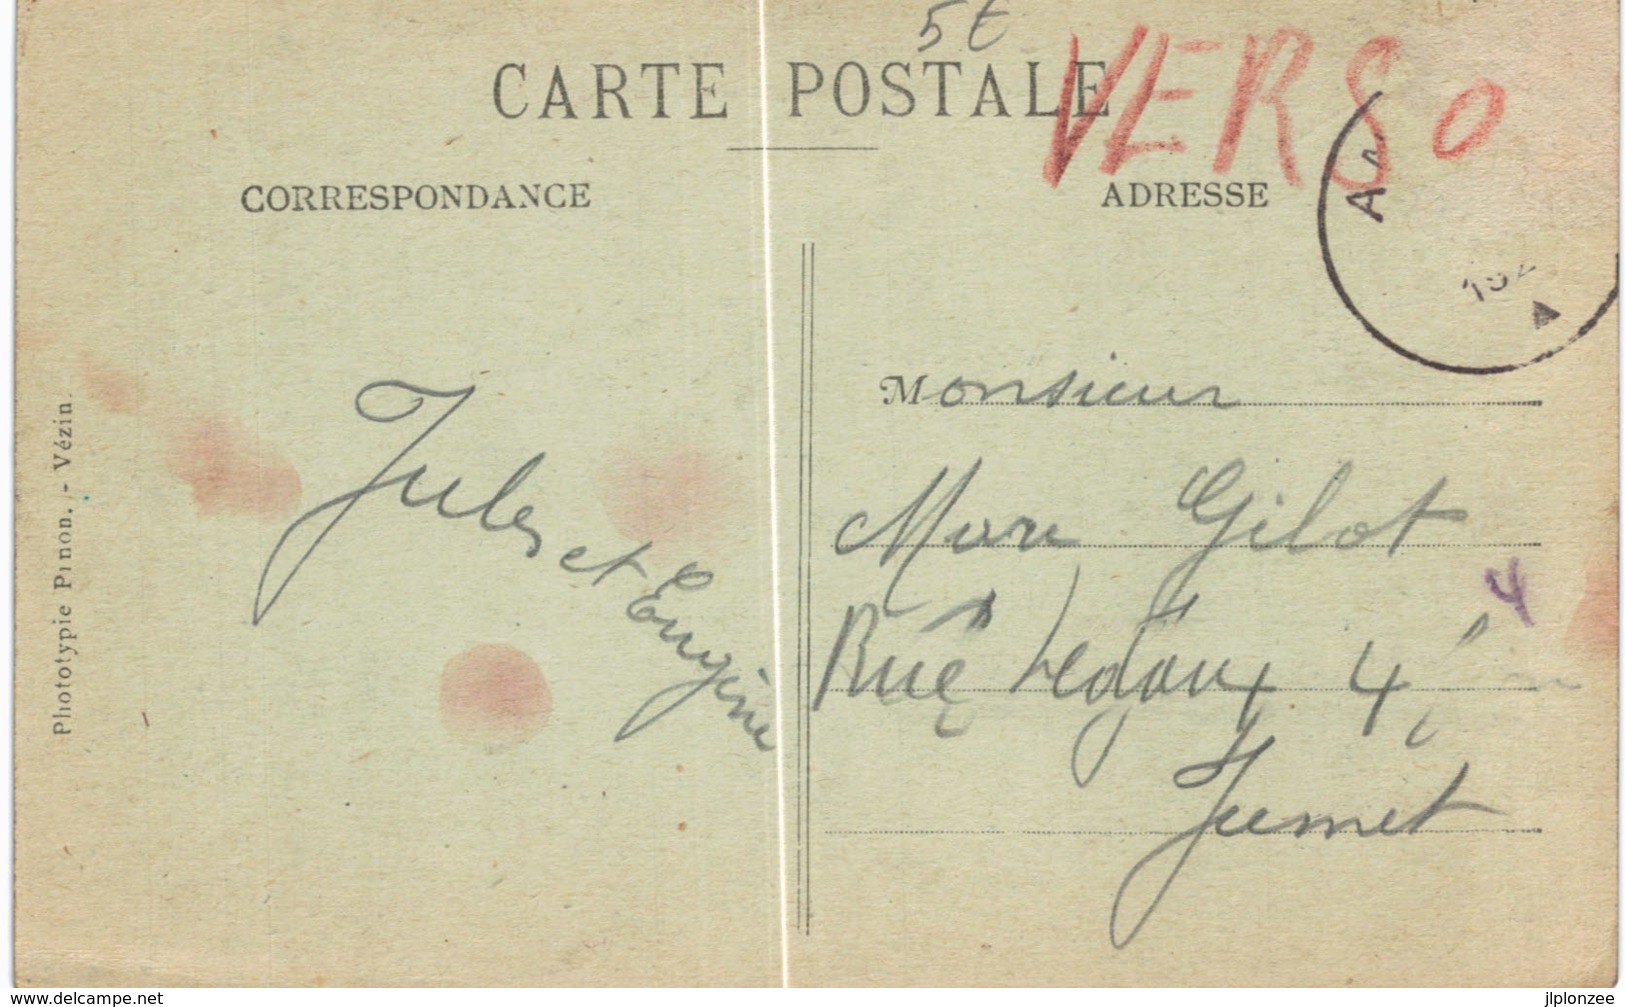 5
CARTE POSTALE
VERSO
CORRESPONDANCE
ADRESSE
A
192
Monsieur
Jules et Eugénie
Gilot
4
Rue 4
Jumet
Phototypie Pinon, - Vézin.
www.delcampe.net
jlplonzee